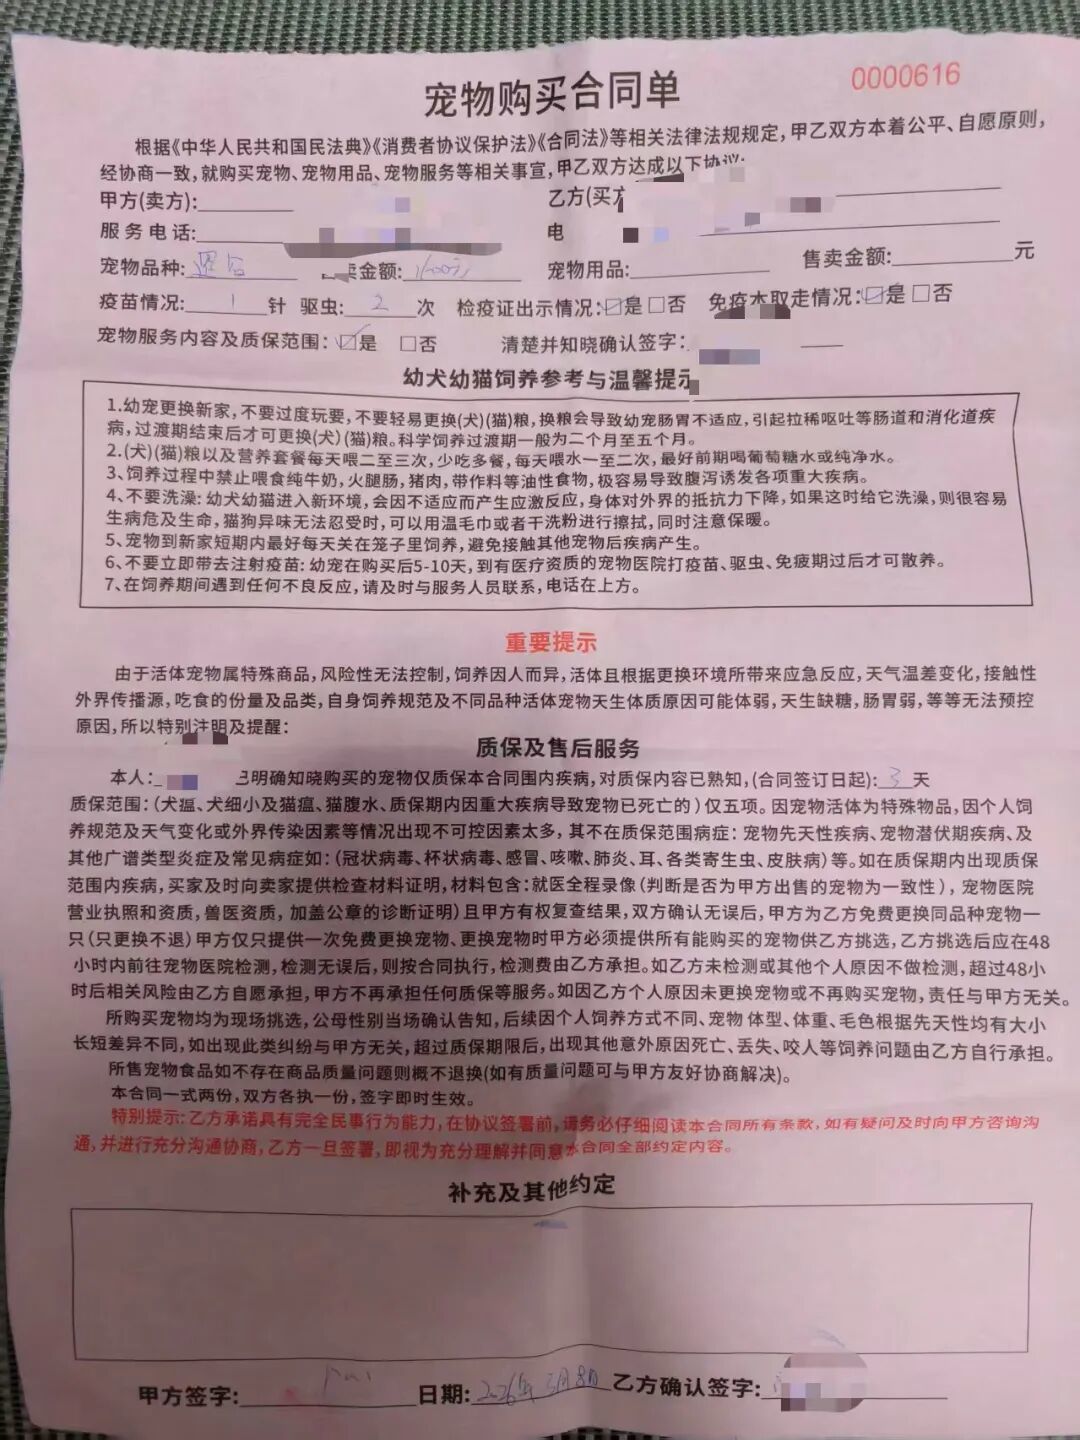 宠物购买合同单
0000616
根据《中华人民共和国民法典》《消费者协议保护法》《合同法》等相关法律法规规定，甲乙双方本着公平、自愿原则，
经协商一致，就购买宠物、宠物用品、宠物服务等相关事宜，甲乙双方达成以下协议：
甲方(卖方): 乙方(买方
服务电话: 电
宠物品种: 卖金额: 宠物用品: 售卖金额: 元
疫苗情况: 1 针 驱虫: 2 次 检疫证出示情况:☑是 □否 免疫本取走情况:☑是 □否
宠物服务内容及质保范围:☑是 □否 清楚并知晓确认签字:
幼犬幼猫饲养参考与温馨提示
1.幼宠更换新家，不要过度玩耍，不要轻易更换(犬)(猫)粮，换粮会导致幼宠肠胃不适应，引起拉稀呕吐等肠道和消化道疾
病，过渡期结束后才可更换(犬)(猫)粮。科学饲养过渡期一般为二个月至五个月。
2.(犬)(猫)粮以及营养套餐每天喂二至三次，少吃多餐，每天喂水一至二次，最好前期喝葡萄糖水或纯净水。
3、饲养过程中禁止喂食纯牛奶，火腿肠，猪肉，带作料等油性食物，极容易导致腹泻诱发各项重大疾病。
4、不要洗澡: 幼犬幼猫进入新环境，会因不适应而产生应激反应，身体对外界的抵抗力下降，如果这时给它洗澡，则很容易
生病危及生命，猫狗异味无法忍受时，可以用温毛巾或者干洗粉进行擦拭，同时注意保暖。
5、宠物到新家短期内最好每天关在笼子里饲养，避免接触其他宠物后疾病产生。
6、不要立即带去注射疫苗: 幼宠在购买后5-10天，到有医疗资质的宠物医院打疫苗、驱虫、免疫期过后才可散养。
7、在饲养期间遇到任何不良反应，请及时与服务人员联系，电话在上方。
重要提示
由于活体宠物属特殊商品，风险性无法控制，饲养因人而异，活体且根据更换环境所带来应急反应，天气温差变化，接触性
外界传播源，吃食的份量及品类，自身饲养规范及不同品种活体宠物天生体质原因可能体弱，天生缺糖，肠胃弱，等等无法预控
原因，所以特别注明及提醒：
质保及售后服务
本人: 已明确知晓购买的宠物仅质保本合同围内疾病，对质保内容已熟知，(合同签订日起): 3 天
质保范围:(犬瘟、犬细小及猫瘟、猫腹水、质保期内因重大疾病导致宠物已死亡的)仅五项。因宠物活体为特殊物品，因个人饲
养规范及天气变化或外界传染因素等情况出现不可控因素太多，其不在质保范围病症：宠物先天性疾病、宠物潜伏期疾病、及
其他广谱类型炎症及常见病症如：(冠状病毒、杯状病毒、感冒、咳嗽、肺炎、耳、各类寄生虫、皮肤病)等。如在质保期内出现质保
范围内疾病，买家及时向卖家提供检查材料证明，材料包含：就医全程录像(判断是否为甲方出售的宠物为一致性)，宠物医院
营业执照和资质，兽医资质，加盖公章的诊断证明)且甲方有权复查结果，双方确认无误后，甲方为乙方免费更换同品种宠物一
只(只更换不退)甲方仅只提供一次免费更换宠物、更换宠物时甲方必须提供所有能购买的宠物供乙方挑选，乙方挑选后应在48
小时内前往宠物医院检测，检测无误后，则按合同执行，检测费由乙方承担。如乙方未检测或其他个人原因不做检测，超过48小
时后相关风险由乙方自愿承担，甲方不再承担任何质保等服务。如因乙方个人原因未更换宠物或不再购买宠物，责任与甲方无关。
所购买宠物均为现场挑选，公母性别当场确认告知，后续因个人饲养方式不同、宠物体型、体重、毛色根据先天性均有大小
长短差异不同，如出现此类纠纷与甲方无关，超过质保期限后，出现其他意外原因死亡、丢失、咬人等饲养问题由乙方自行承担。
所售宠物食品如不存在商品质量问题则概不退换(如有质量问题可与甲方友好协商解决)。
本合同一式两份，双方各执一份，签字即时生效。
特别提示：乙方承诺具有完全民事行为能力，在协议签署前，请务必仔细阅读本合同所有条款，如有疑问及时向甲方咨询沟
通，并进行充分沟通协商，乙方一旦签署，即视为充分理解并同意本合同全部约定内容。
补充及其他约定
甲方签字: 日期: 2026年3月8日 乙方确认签字: